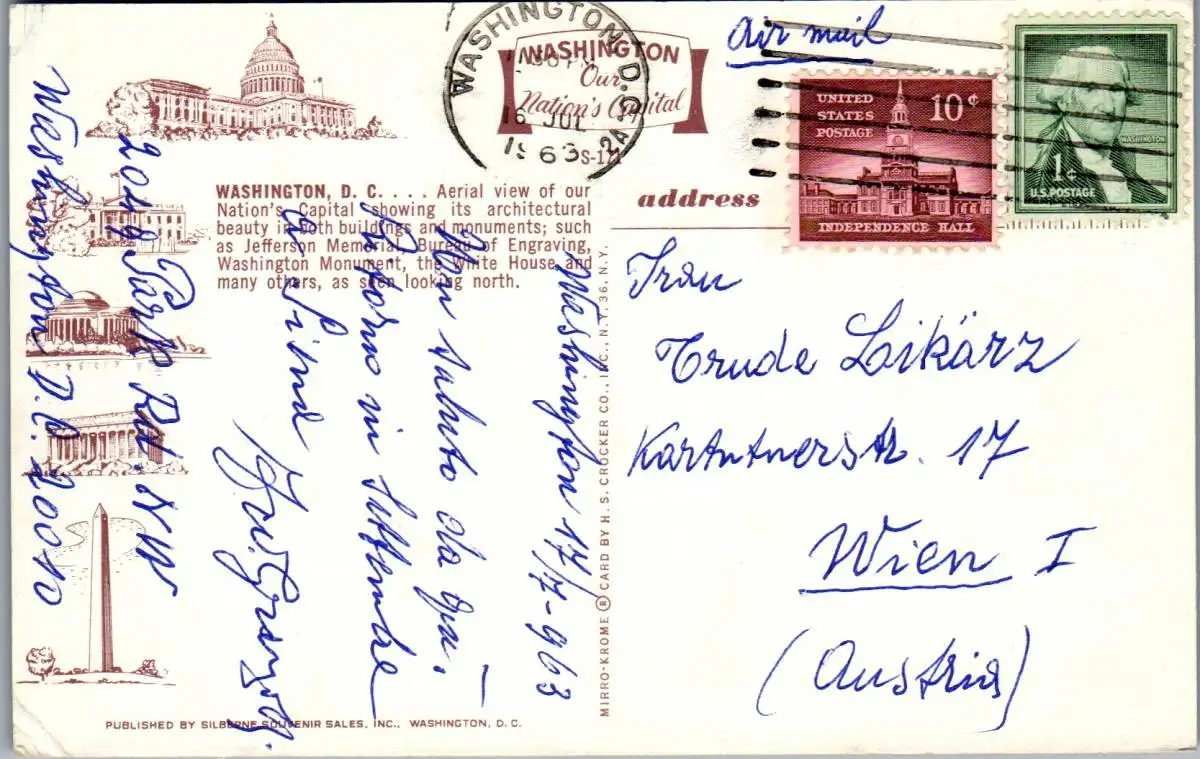 air mail
WASHINGTON, D.C.
16 JUL
1963
WASHINGTON
Our
Nation's Capital
UNITED
STATES
POSTAGE
10¢
INDEPENDENCE HALL
WASHINGTON
1¢
U.S. POSTAGE
WASHINGTON, D. C. . . . . Aerial view of our
Nation's Capital showing its architectural
beauty in both buildings and monuments; such
as Jefferson Memorial, Bureau of Engraving,
Washington Monument, the White House and
many others, as seen looking north.
address
Frau
Trude Loikärz
Kärntnerstr. 17
Wien I
(Austria)
Washington 17/7-963
Un saluto da qui.
Torno in Settembre
a
Park Rd. NW
Washington D.C. 20010
MIRRO-KROME ® CARD BY H. S. CROCKER CO., INC., N. Y. 36, N. Y.
PUBLISHED BY SILBERNE SOUVENIR SALES, INC., WASHINGTON, D. C.